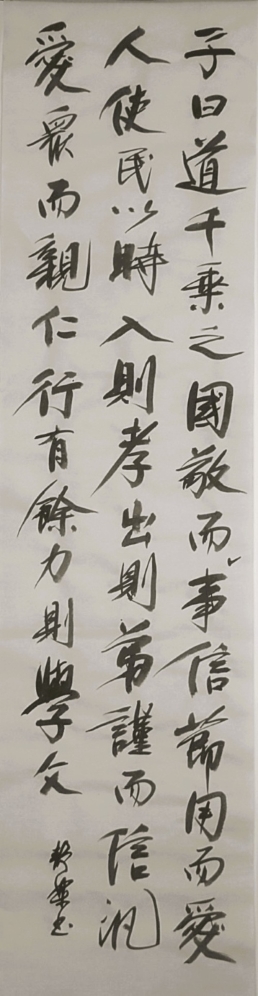 子曰道千乘之國敬而事信節用而愛
人使民以時入則孝出則弟謹而信汎
愛衆而親仁行有餘力則學文